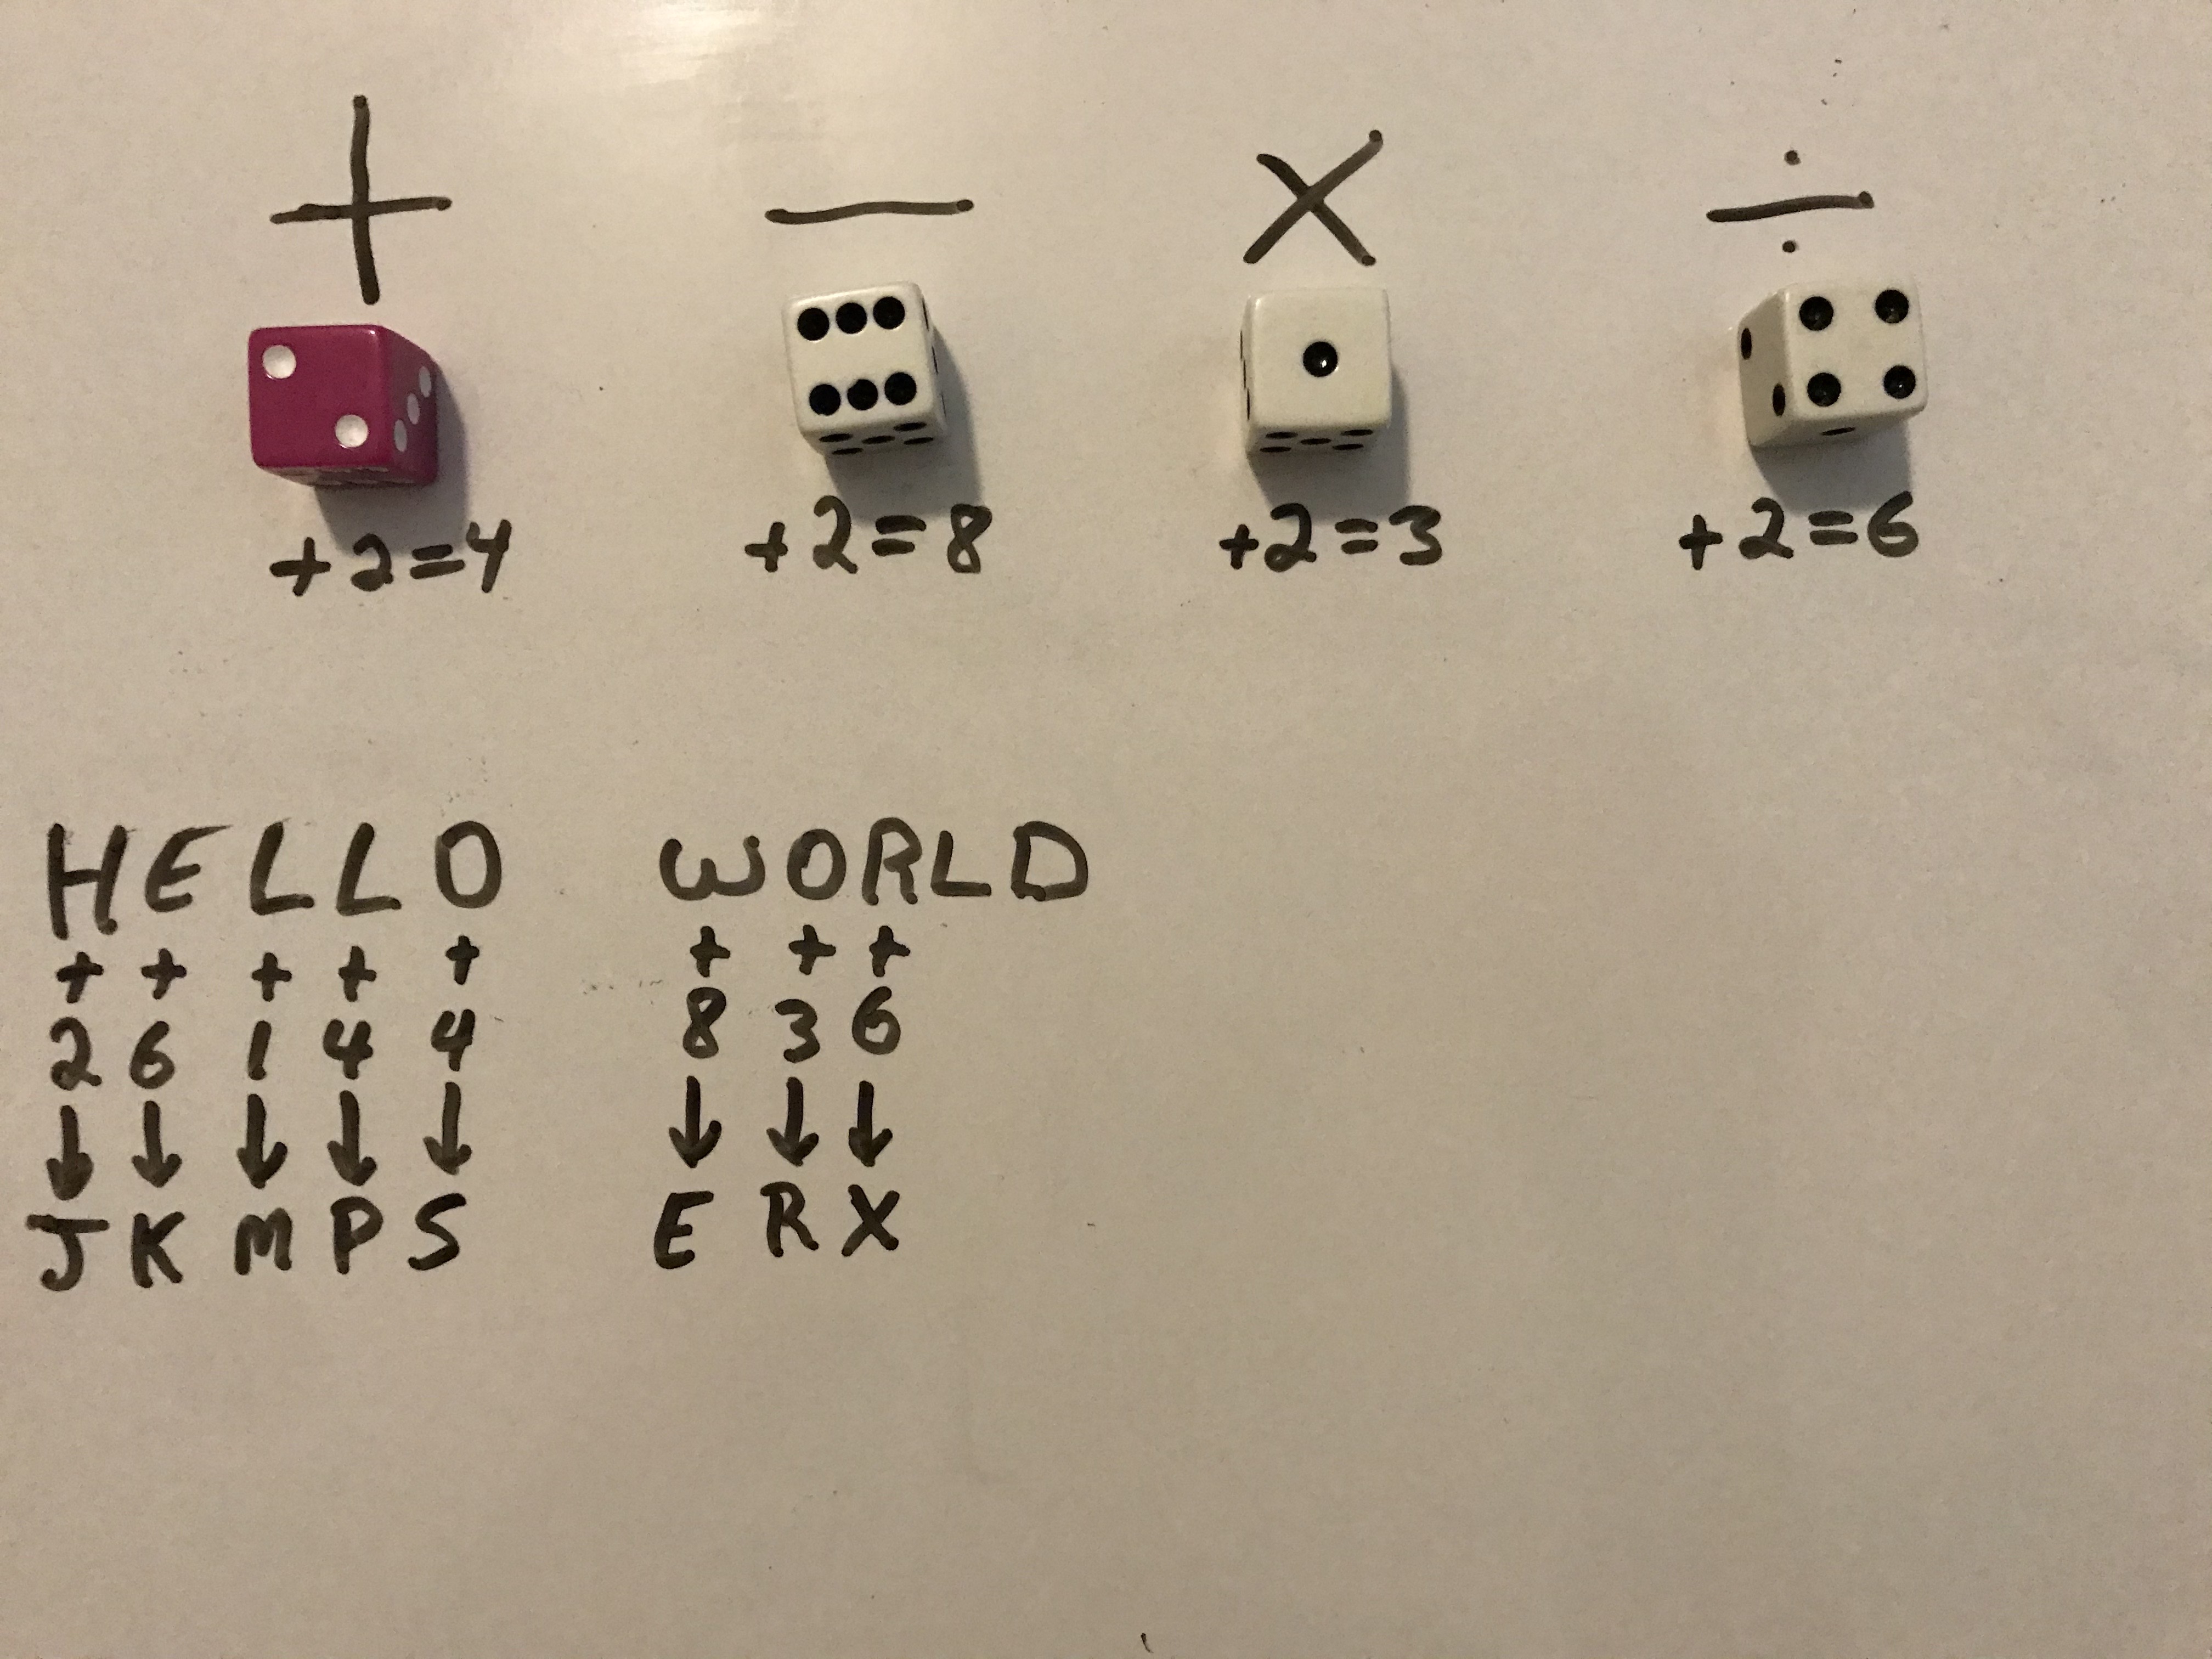 + — × ÷
+2=4 +2=8 +2=3 +2=6
HELLO WORLD
+ + + + + + + +
2 6 1 4 4 8 3 6
↓ ↓ ↓ ↓ ↓ ↓ ↓ ↓
J K M P S E R X